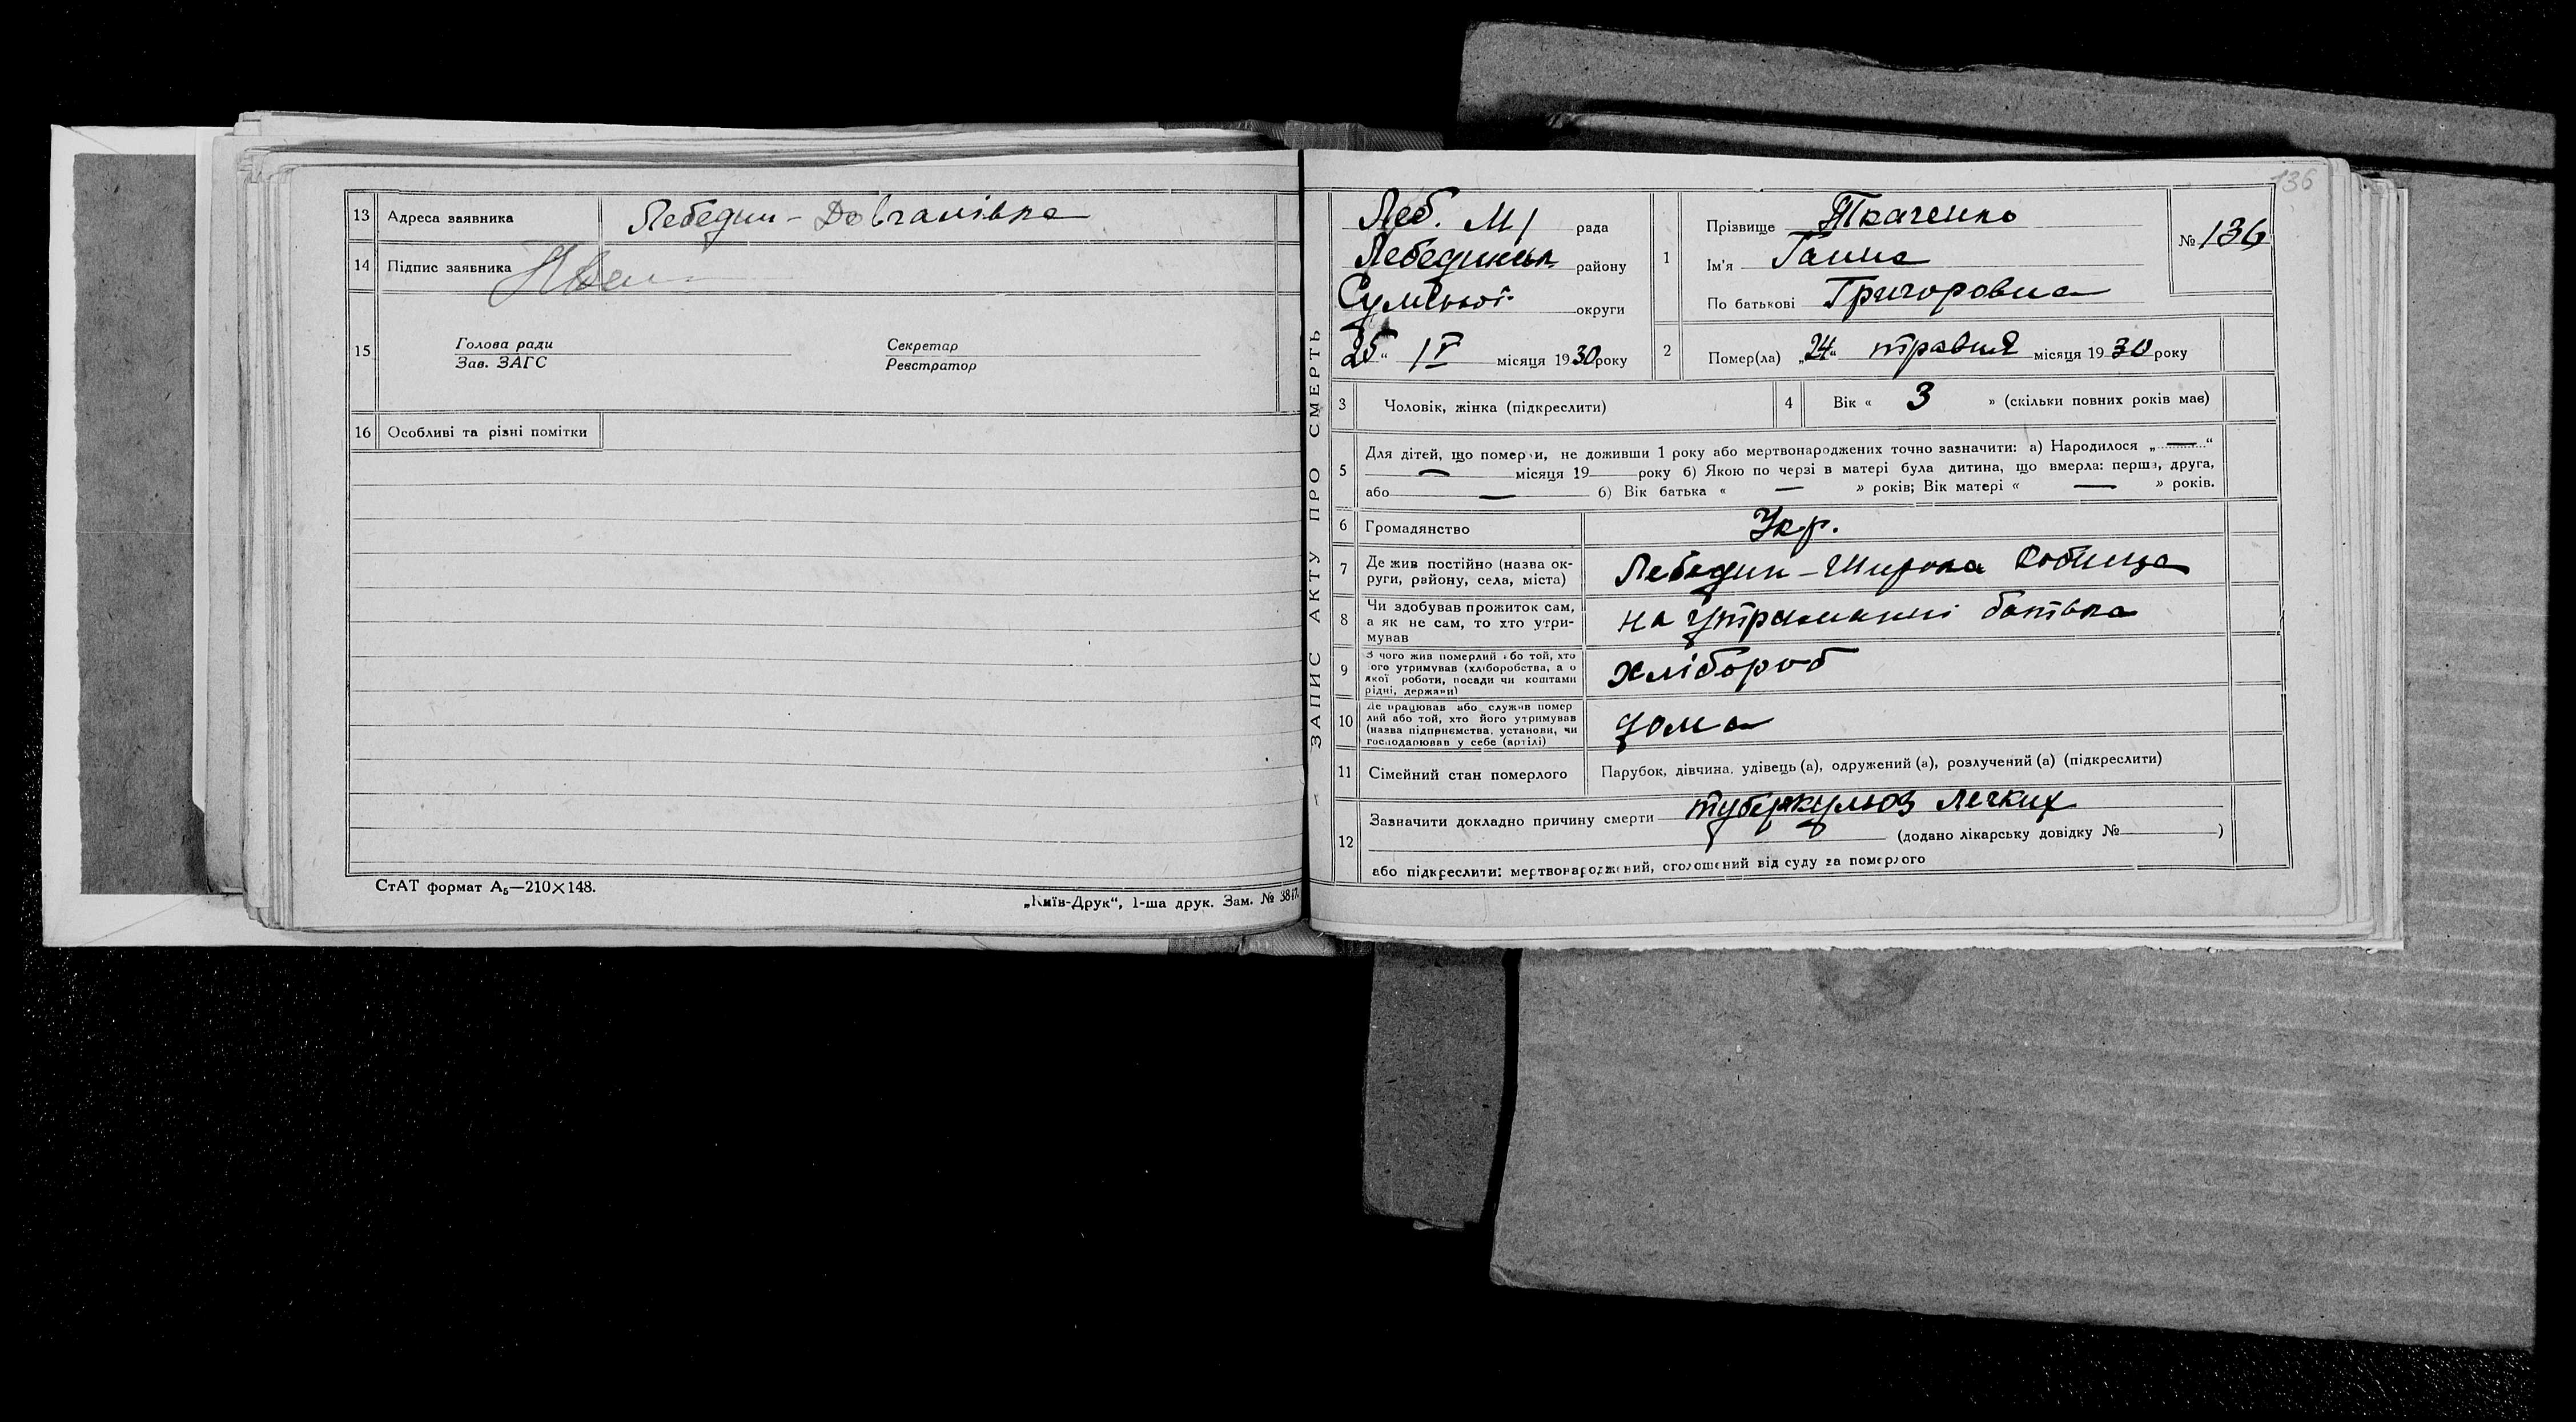 13 Адреса заявника Лебедин - Довгалівка
14 Підпис заявника
15 Голова ради Секретар
Зав. ЗАГС Реєстратор
16 Особливі та різні помітки
СтАТ формат А₅—210×148.
„Київ-Друк“, 1-ша друк. Зам. № 3817.
136
ЗАПИС АКТУ ПРО СМЕРТЬ
Леб. М/ рада
Лебединськ. району
Сумської округи
25 “ IV місяця 1930 року
1 Прізвище Ткаченко
Ім'я Ганна
По батькові Григоровна
№ 136
2 Помер(ла) „24“ травня місяця 1930 року
3 Чоловік, жінка (підкреслити)
4 Вік « 3 » (скільки повних років має)
5 Для дітей, що померли, не доживши 1 року або мертвонароджених точно зазначити: а) Народилося „ — “
— місяця 19 року б) Якою по черзі в матері була дитина, що вмерла: перша, друга,
або — б) Вік батька « — » років; Вік матері « — » років.
6 Громадянство Укр.
7 Де жив постійно (назва ок-
руги, району, села, міста) Лебедин - Широка
8 Чи здобував прожиток сам,
а як не сам, то хто утри-
мував на утриманні батька
9 З чого жив померлий або той, хто
його утримував (хліборобства, а о
якої роботи, посади чи коштами
рідні, держави) хлібороб
10 Де працював або служив помер
лий або той, хто його утримував
(назва підприємства, установи, чи
господарював у себе (артілі) дома
11 Сімейний стан померлого Парубок, дівчина, удівець (а), одружений (а), розлучений (а) (підкреслити)
12 Зазначити докладно причину смерти туберкульоз легких
(додано лікарську довідку № )
або підкреслити: мертвонароджений, оголошений від суду за померлого